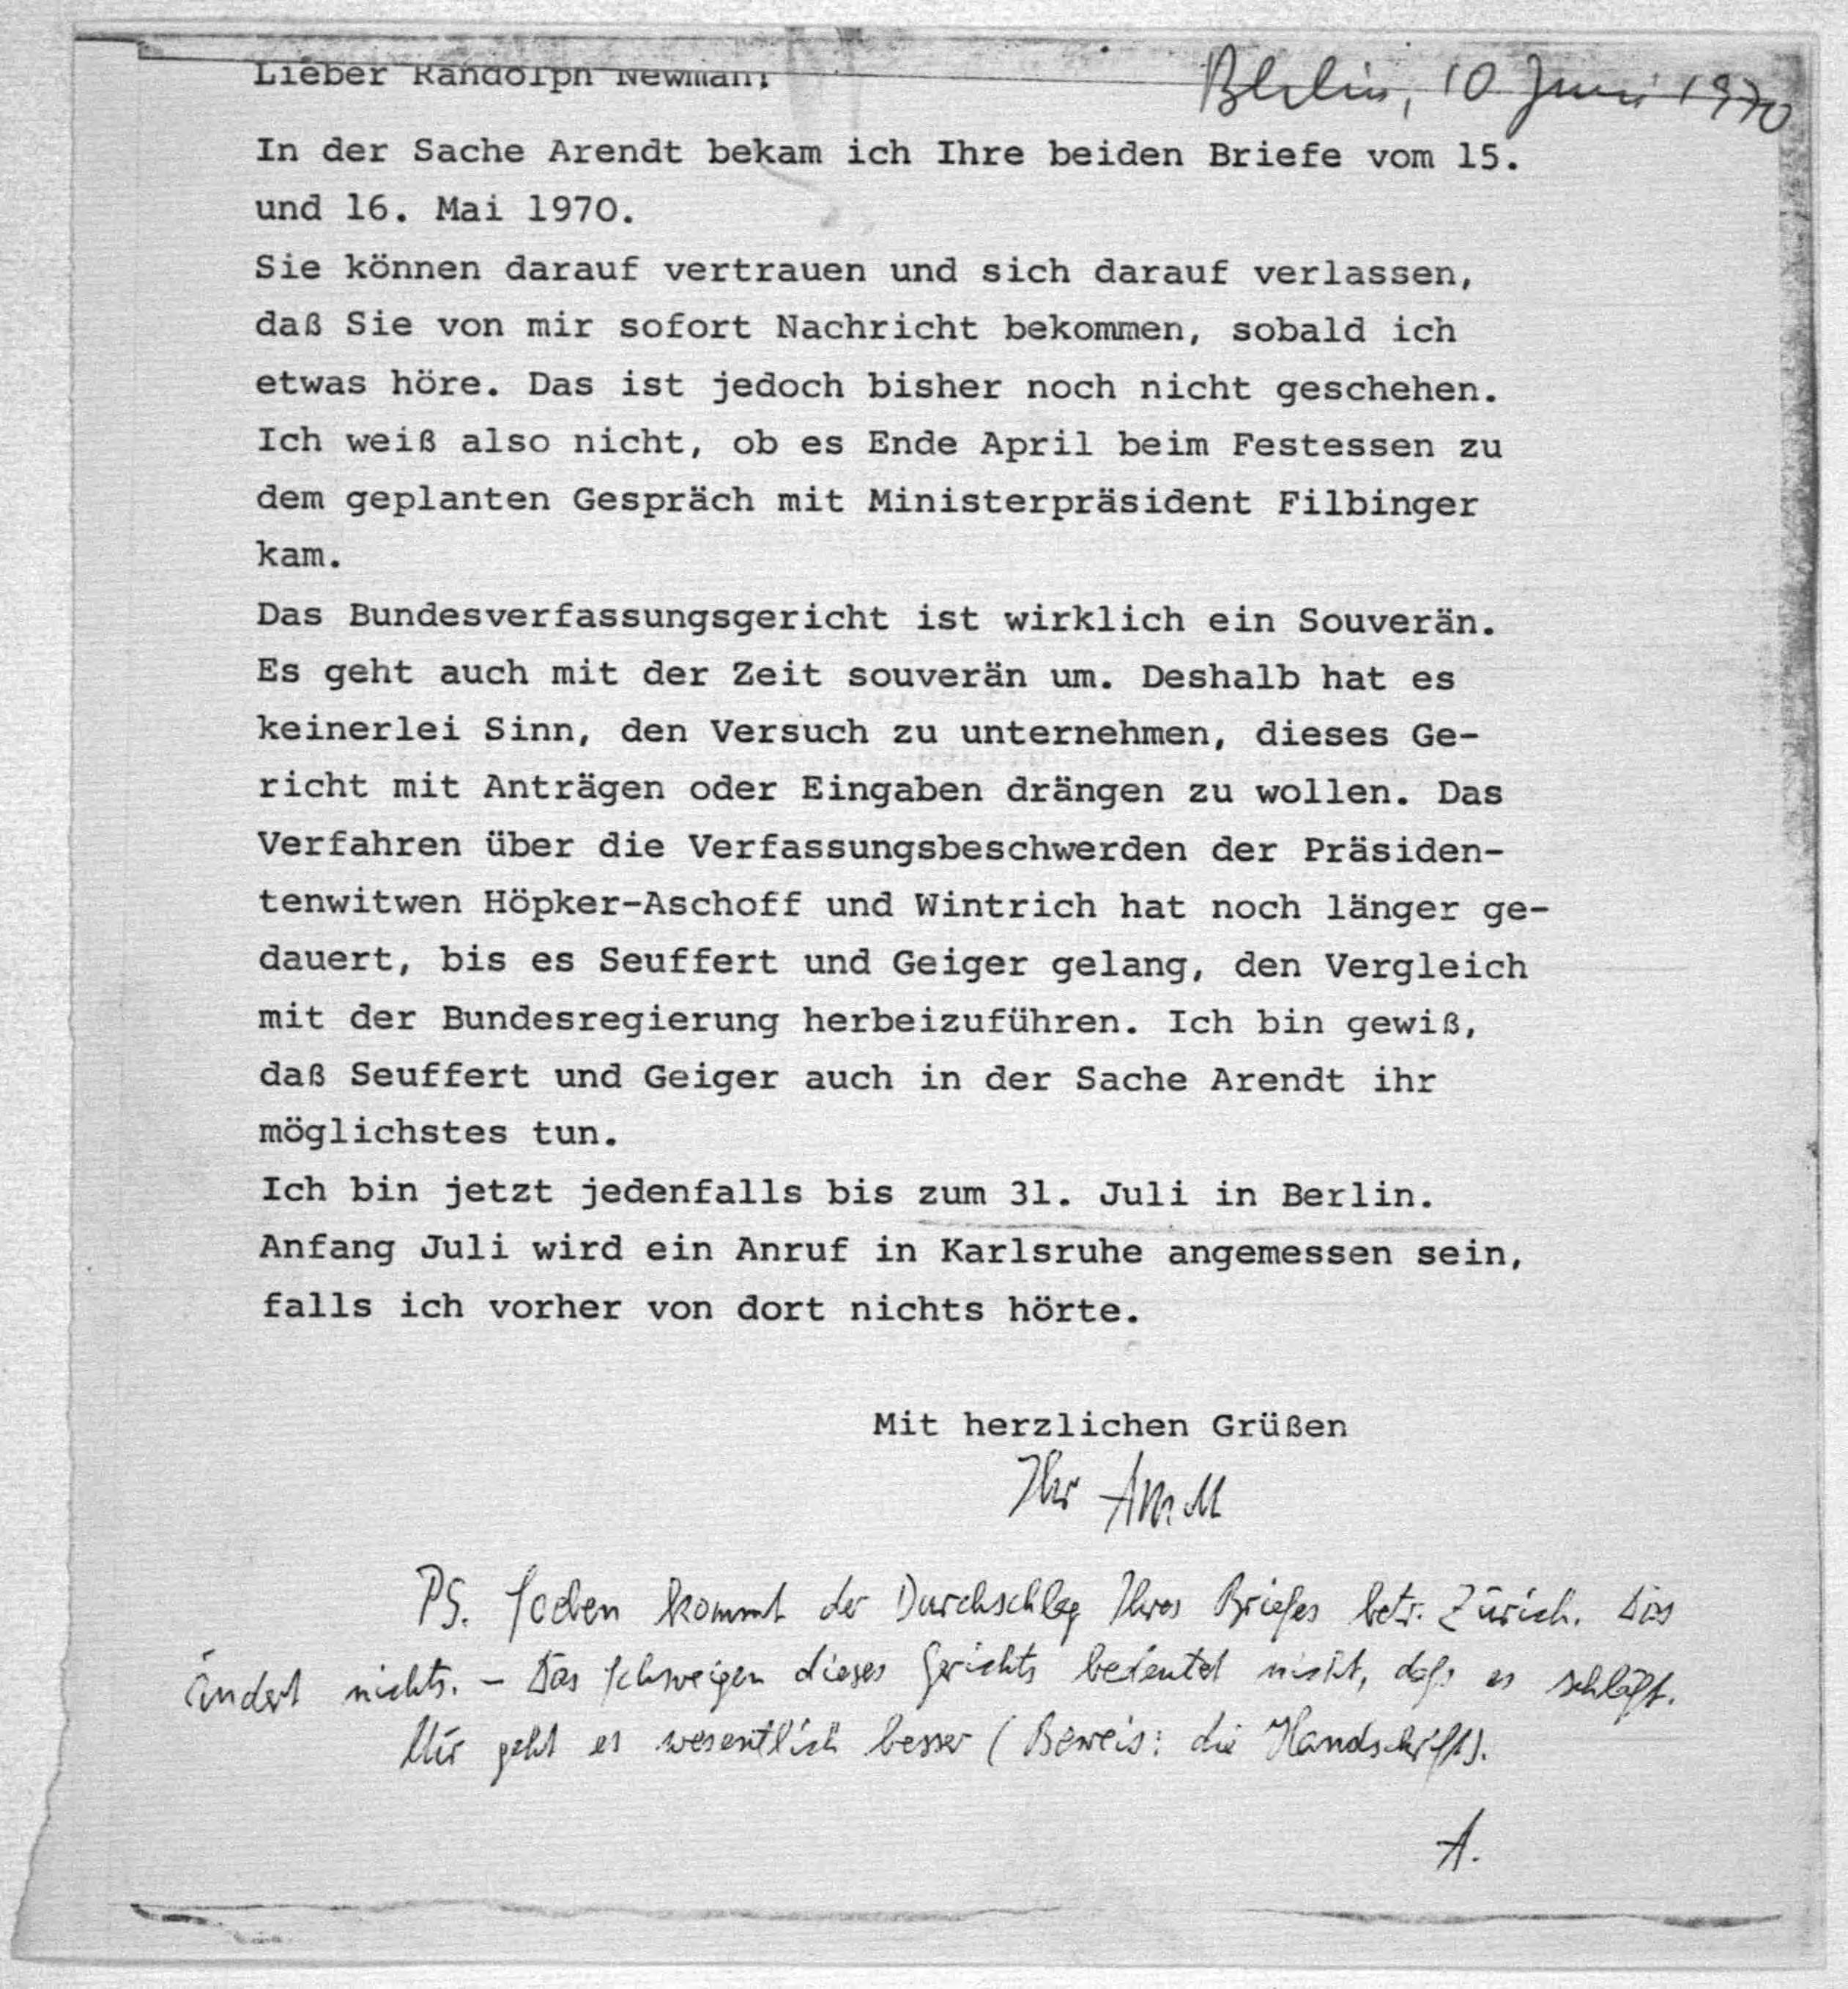 Lieber Randolph Newman!
Berlin, 10 Juni 1970
In der Sache Arendt bekam ich Ihre beiden Briefe vom 15.
und 16. Mai 1970.
Sie können darauf vertrauen und sich darauf verlassen,
daß Sie von mir sofort Nachricht bekommen, sobald ich
etwas höre. Das ist jedoch bisher noch nicht geschehen.
Ich weiß also nicht, ob es Ende April beim Festessen zu
dem geplanten Gespräch mit Ministerpräsident Filbinger
kam.
Das Bundesverfassungsgericht ist wirklich ein Souverän.
Es geht auch mit der Zeit souverän um. Deshalb hat es
keinerlei Sinn, den Versuch zu unternehmen, dieses Ge-
richt mit Anträgen oder Eingaben drängen zu wollen. Das
Verfahren über die Verfassungsbeschwerden der Präsiden-
tenwitwen Höpker-Aschoff und Wintrich hat noch länger ge-
dauert, bis es Seuffert und Geiger gelang, den Vergleich
mit der Bundesregierung herbeizuführen. Ich bin gewiß,
daß Seuffert und Geiger auch in der Sache Arendt ihr
möglichstes tun.
Ich bin jetzt jedenfalls bis zum 31. Juli in Berlin.
Anfang Juli wird ein Anruf in Karlsruhe angemessen sein,
falls ich vorher von dort nichts hörte.
Mit herzlichen Grüßen
Ihr
PS. Soeben kommt der Durchschlag Ihres Briefes betr. Zürich. Das
ändert nichts. – Das Schweigen dieses Gerichts bedeutet nicht, daß es schläft.
Mir geht es wesentlich besser (Beweis: die Handschrift).
A.